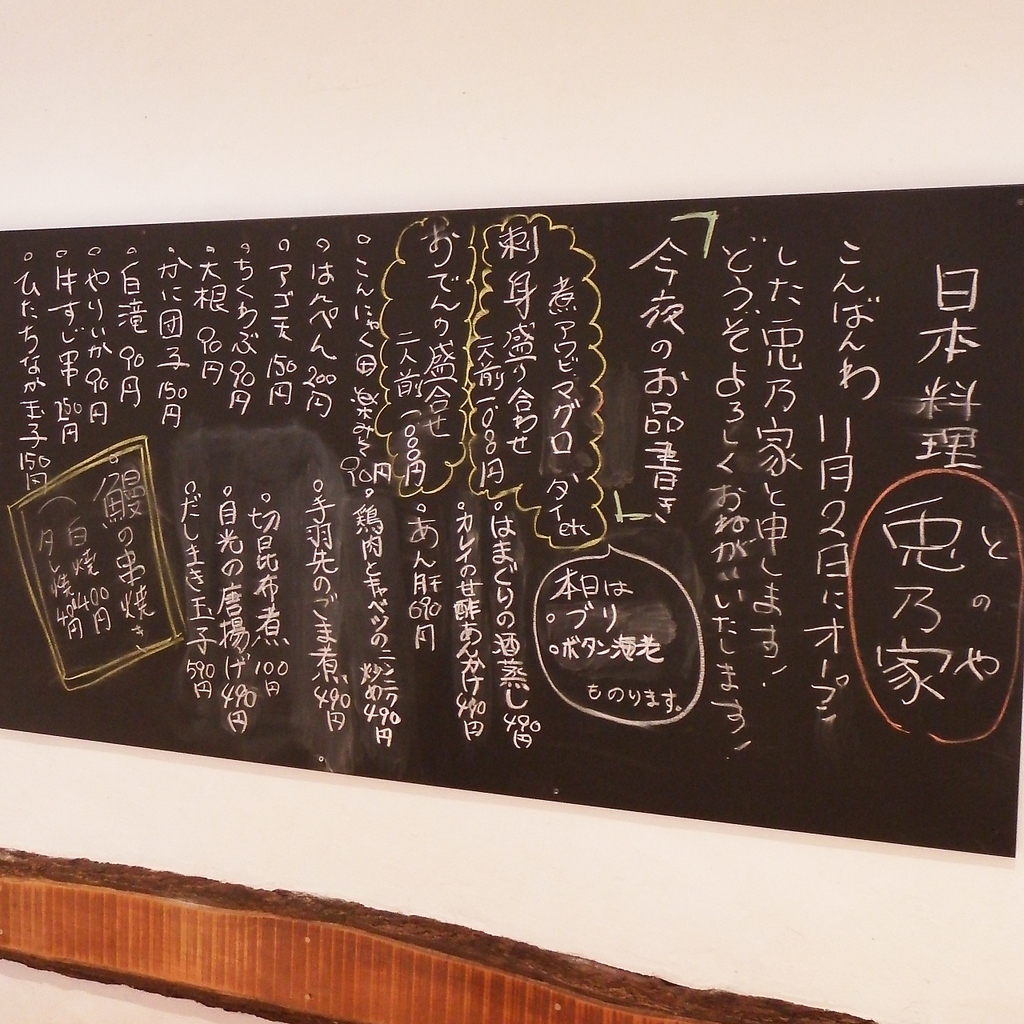 日本料理
とのや
兎乃家
こんばんわ 11月2日にオープン
した兎乃家と申します!
どうぞよろしくおねがいいたします!
今夜のお品書き
煮アワビ・マグロ タイetc
刺身盛り合わせ
二人前1000円
おでんの盛合せ
二人前1000円
本日は
ブリ
ボタン海老
ものります。
こんにゃく田楽みそ90円
はんぺん200円
アゴ天150円
ちくわぶ90円
大根90円
かに団子150円
白滝90円
やりいか90円
牛すじ串150円
ひたちなか玉子150円
はまぐりの酒蒸し490円
カレイの甘酢あんかけ490円
あん肝690円
鶏肉とキャベツのニンニク炒め490円
手羽先のごま煮490円
切昆布煮100円
目光の唐揚げ490円
だしまき玉子590円
鰻の串焼き
白焼400円
タレ焼400円